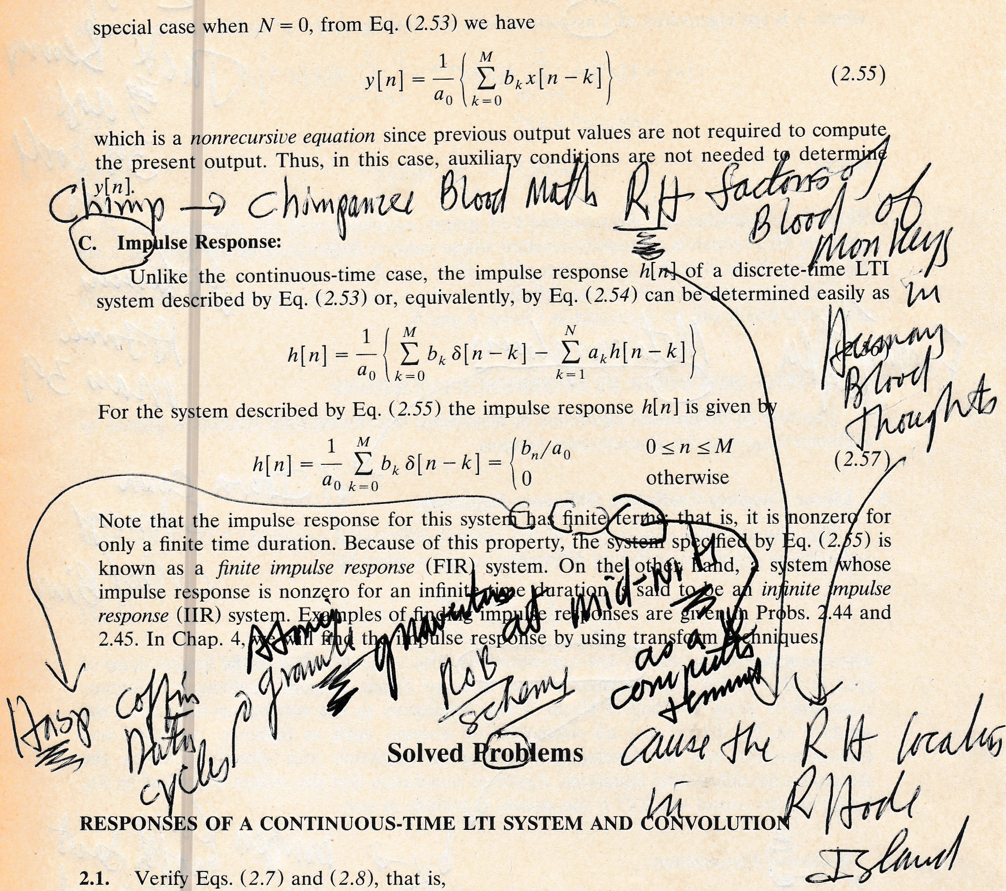 special case when N = 0, from Eq. (2.53) we have
y[n] = 1/a₀ { ∑_{k=0}^{M} b_k x[n − k] } (2.55)
which is a nonrecursive equation since previous output values are not required to compute
the present output. Thus, in this case, auxiliary conditions are not needed to determine
y[n].
Chimp → Chimpanzee Blood Math RH factors of
Blood of
Monkeys
in
Human
Blood
Thoughts
C. Impulse Response:
Unlike the continuous-time case, the impulse response h[n] of a discrete-time LTI
system described by Eq. (2.53) or, equivalently, by Eq. (2.54) can be determined easily as
h[n] = 1/a₀ { ∑_{k=0}^{M} b_k δ[n − k] − ∑_{k=1}^{N} a_k h[n − k] }
For the system described by Eq. (2.55) the impulse response h[n] is given by
h[n] = 1/a₀ ∑_{k=0}^{M} b_k δ[n − k] = { b_n/a₀ 0 ≤ n ≤ M
0 otherwise (2.57)
Note that the impulse response for this system has finite terms; that is, it is nonzero for
only a finite time duration. Because of this property, the system specified by Eq. (2.55) is
known as a finite impulse response (FIR) system. On the other hand, a system whose
impulse response is nonzero for an infinite time duration is said to be an infinite impulse
response (IIR) system. Examples of finding impulse responses are given in Probs. 2.44 and
2.45. In Chap. 4, we will find the impulse response by using transform techniques.
Hasp
coffin
Data
cycles
Atomic
granite
at mid-
as a
RoB
schems
cause the RH location
in RHode
Island
Solved Problems
RESPONSES OF A CONTINUOUS-TIME LTI SYSTEM AND CONVOLUTION
2.1. Verify Eqs. (2.7) and (2.8), that is,